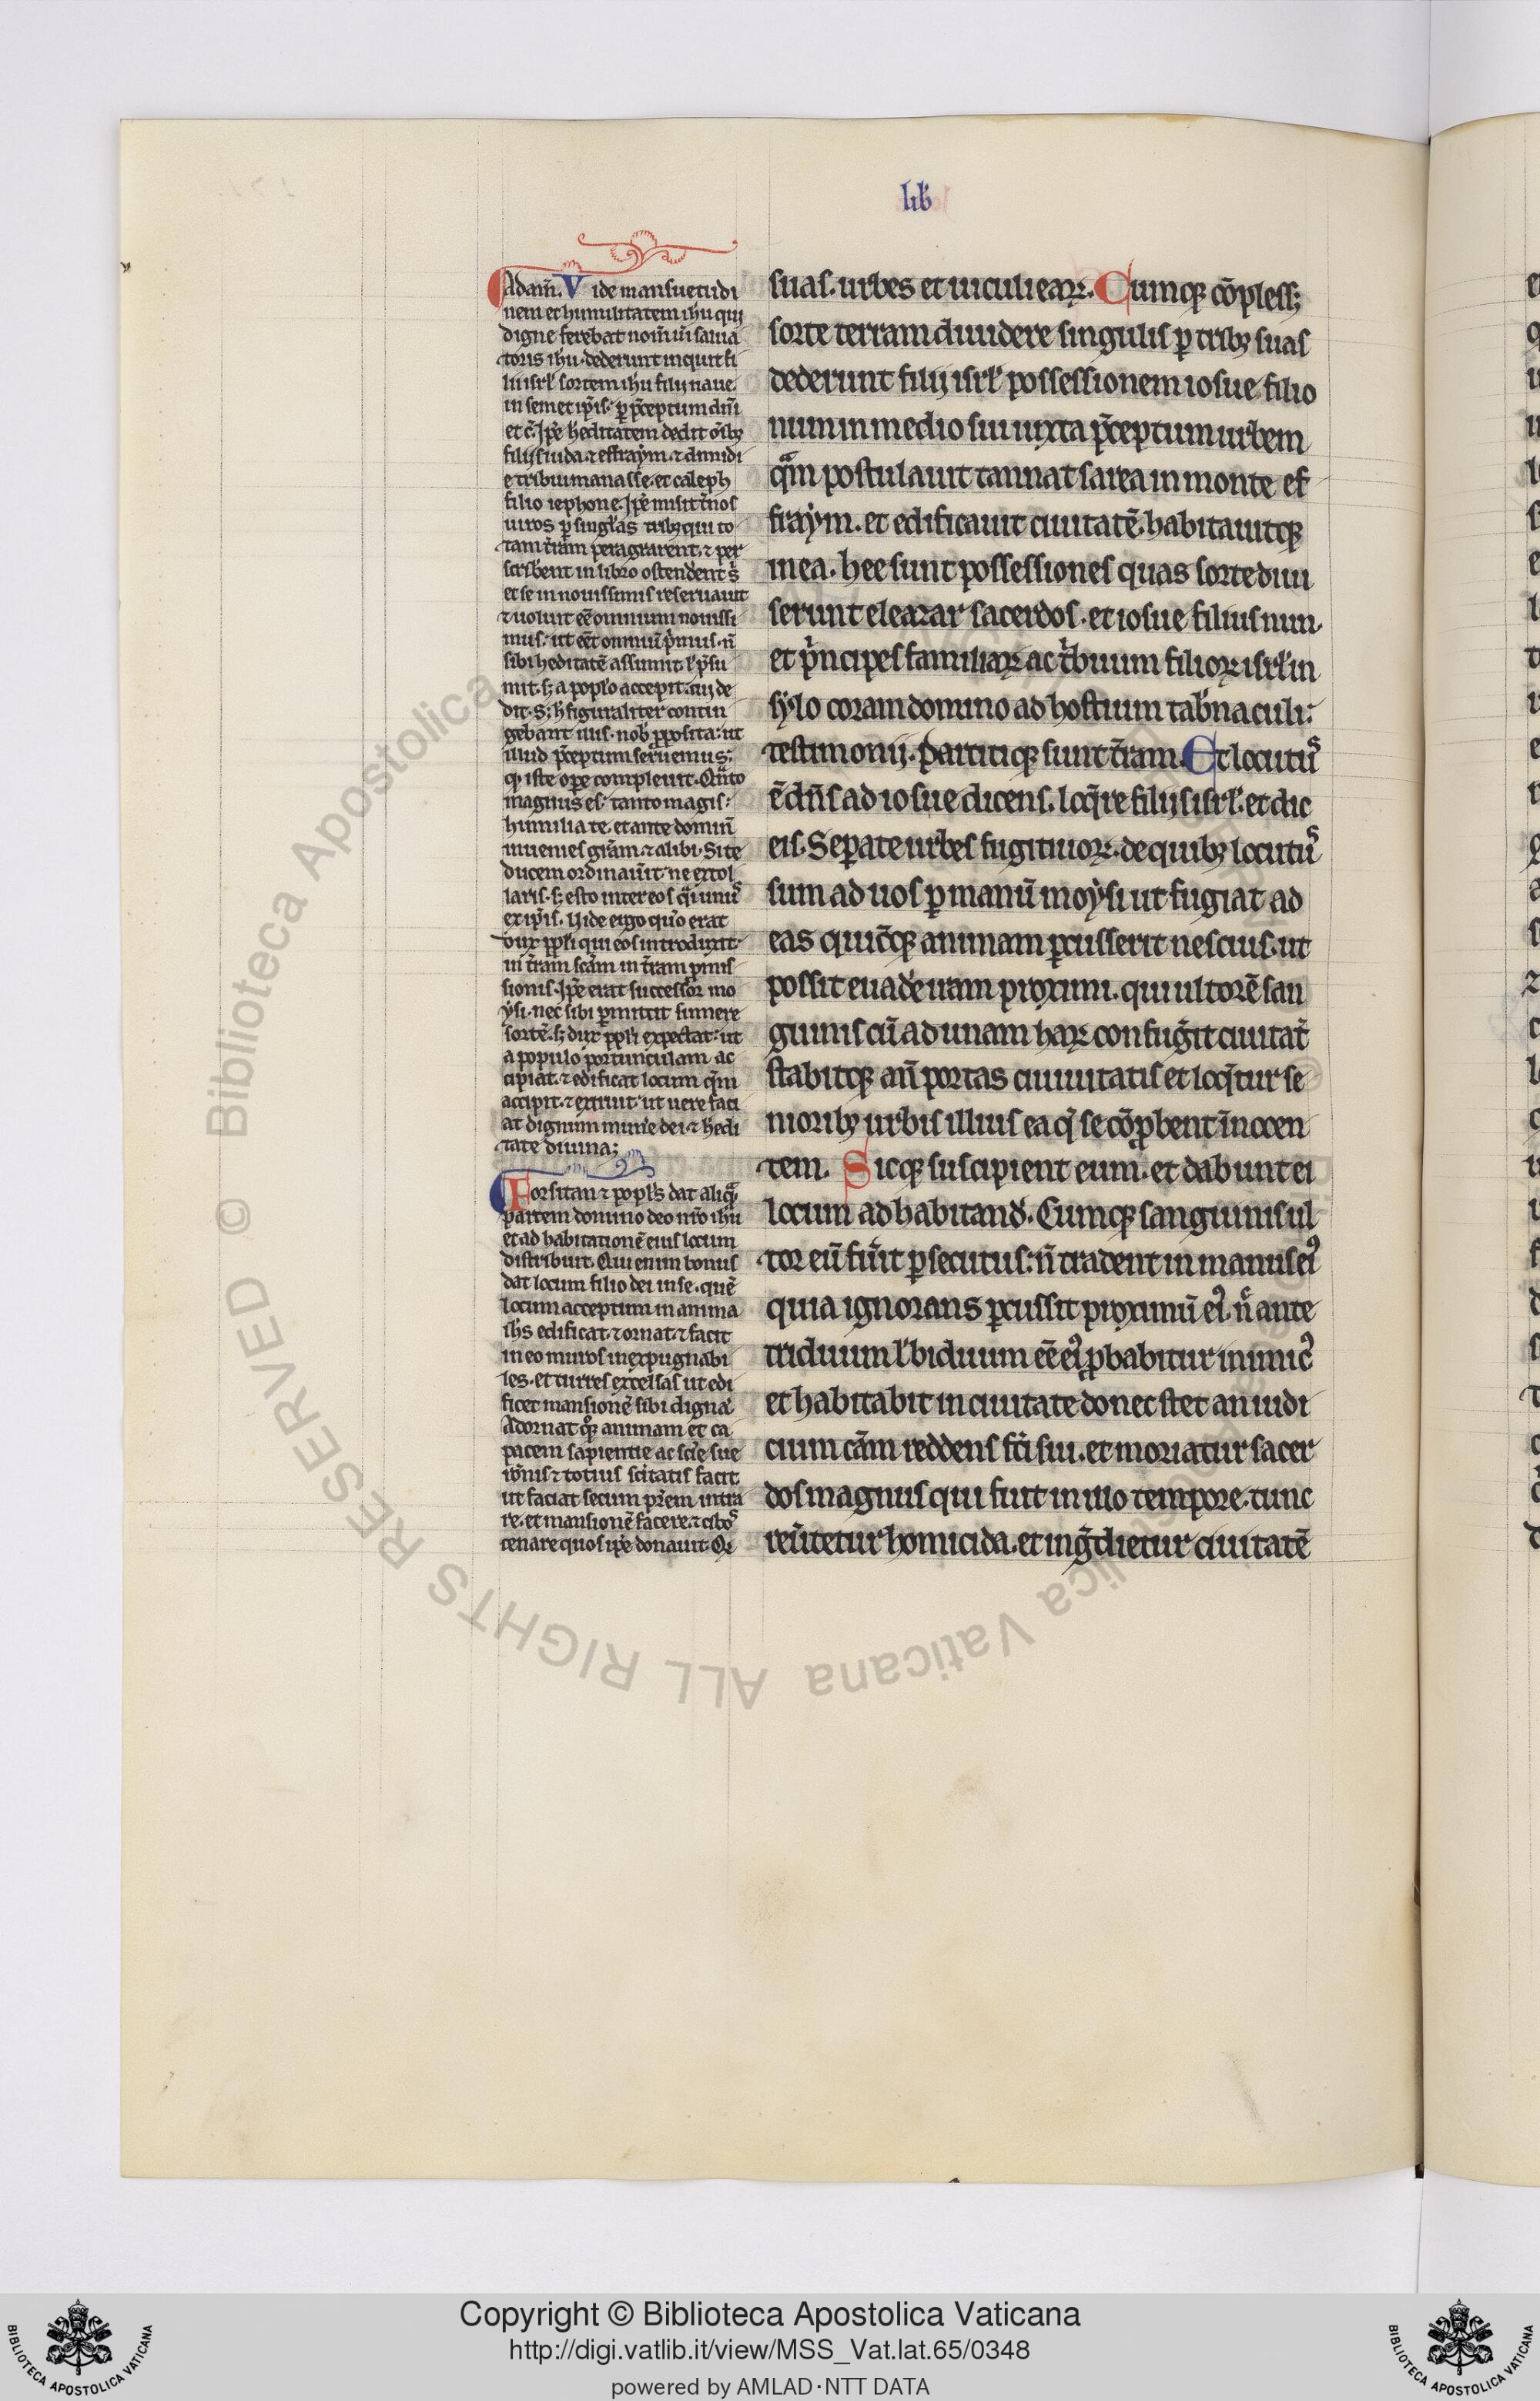 lib̃
Adam̃. Vide mansuetudi
nem et humilitatem ihũ qui
digne ferebat nom̃ ũi salua
toris ihũ. dederunt inquit fi
lii isrł sortem ihũ filij naue.
in semet ip̃is. ꝑ p̃ceptum dñi
et c̃. Ip̃e h̃editatem dedit oĩbꝫ
filijs iuda. ⁊ effraym. ⁊ dimidi
e tribui manasse. et caleph
filio iephone. Ip̃e misit t̃nos
uiros ꝑ singłas tribꝫ qui to
tam t̃ram peragrarent. ⁊ per
scriberent in libro ostenderent s̃
et se in nouissimis reseruauit
⁊ uoluit ee᷃ omnium nouissi
mus. ut eet᷃ omniũ p̃mus. ñ
sibi h̃editatẽ assumit ł p̃su
mit. sꝫ a popło accepit. cuj de
dit. S; h̃ figuraliter contin
gebant illis. nob̃ ꝓposita: ut
illud p̃ceptum seruemus:
q̃ iste oꝑe compleuit. Qñto
magnus es. tanto magis:
humilia te. et ante dominũ
inuenies gr̃am. ⁊ alibi. Si te
ducem ordinauer̃it. ne extol
laris. sꝫ esto inter eos q̃i unus
ex ip̃is. Uide ergo quo erat
dux ppłi qui eos introduxit.
in t̃ram scãm in t̃ram ꝓmis
sionis. Ip̃e erat successor mo
ysi. nec sibi ꝑmittit sumere
sortẽ. sꝫ dux ppłi expectat: ut
a populo portiunculam ac
cipiat. ⁊ edificat locum q̃m
accipit. ⁊ extruit. ut uere faci
at dignum mune dei ⁊ h̃edi
tate diuina;
Forsitan ⁊ popłs dat aliq̃
partem domino deo nr̃o ihũ
et ad habitationẽ eius locum
distribuit. Qui enim bonus
dat locum filio dei in se. quẽ
locum acceptum in anima
ih̃s edificat. ⁊ ornat. ⁊ facit
in eo muros inexpugnabi
les. et turres excelsas ut edi
ficet mansionẽ sibi dignã
Adornat qꝫ animam et ca
pacem sapientie ac scĩe sue
⁊ totius sc̃itatis facit
ut faciat secum pr̃em intra
re. et mansionẽ facere. ⁊ cibos
cenare quos ip̃e donauit. Qꝛ
suas. urbes et uiculi eaꝝ. Cumqꝫ cõpless;
sorte terram diuidere singulis ꝑ tribꝫ suas
dederunt filij isrł possessionem iosue filio
nun in medio sui iuxta p̃ceptum urbem
q̃m postulauit tamnat sarea in monte ef
fraym. et edificauit ciuitatẽ. habitauitqꝫ
in ea. hee sunt possessiones quas sorte diui
serunt eleazar sacerdos. et iosue filius nun.
et p̃ncipes familiaꝝ ac t̃buum filioꝝ isrł in
sylo coram domino ad hostium tab̃naculi:
testimonij. Partitiqꝫ sunt t̃ram. Et locutus
ẽ dñs ad iosue dicens. loq̃re filijs isrł. et dic
eis. Separate urbes fugitiuoꝝ. de quibꝫ locutus
sum ad uos ꝑ manũ moysi ut fugiat ad
eas quicũqꝫ animam ꝑcusserit nescius. ut
possit euadere iram proximi. qui ultorẽ san
guinis cũ ad unam haꝝ confug̃it ciuitat̃
stabitqꝫ añ portas ciuiuitatis et loq̃tur se
nioribꝫ urbis illius ea q̃ se cõꝓbent ĩnocen
tem. Sicqꝫ suscipient eum. et dabunt ei
locum ad habitand̃. Cumqꝫ sanguinis ul
tor eũ fũit ꝑsecutus: ñ tradent in manus eiꝰ
quia ignorans ꝑcussit proximũ eiꝰ. ñ ante
triduum ł biduum eẽ eiꝰ ꝓbabitur inimicꝰ
et habitabit in ciuitate donec stet an iudi
cium cãm reddens fc̃i sui. et moriatur sacer
dos magnus qui fuit in illo tempore. tunc
reũtetur homicida. et ing̃dietur ciuitatẽ
Copyright © Biblioteca Apostolica Vaticana
http://digi.vatlib.it/view/MSS_Vat.lat.65/0348
powered by AMLAD·NTT DATA
BIBLIOTECA APOSTOLICA VATICANA
BIBLIOTECA APOSTOLICA VATICANA
© Biblioteca Apostolica Vaticana ALL RIGHTS RESERVED